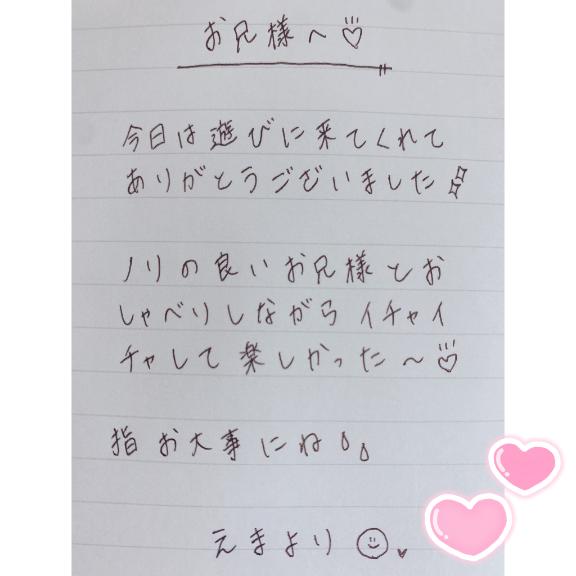 お兄様へ♡
今日は遊びに来てくれて
ありがとうございました
ノリの良いお兄様とお
しゃべりしながらイチャイ
チャして楽しかった〜♡
指お大事にね
えまより